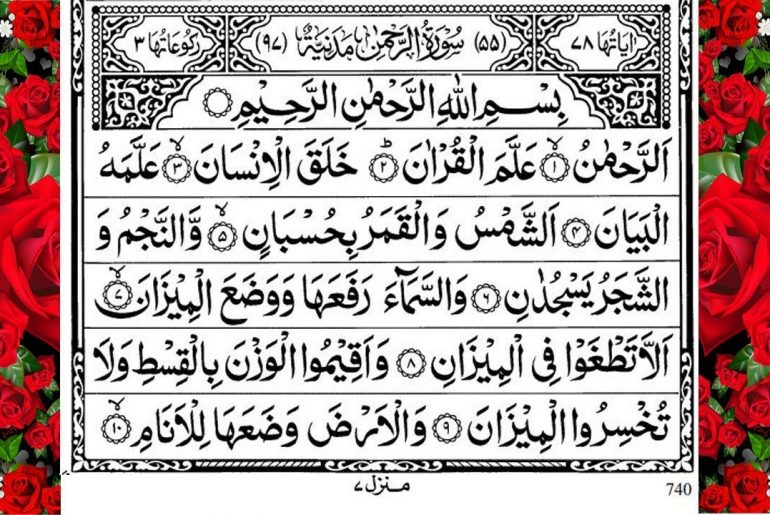 اٰيَاتُهَا ٧٨ (٥٥) سُوْرَةُ الرَّحْمٰنِ مَدَنِيَّةٌ (٩٧) رُكُوْعَاتُهَا ٣
بِسْمِ اللهِ الرَّحْمٰنِ الرَّحِيْمِ
اَلرَّحْمٰنُ ۙ﴿١﴾ عَلَّمَ الْقُرْاٰنَ ؕ﴿٢﴾ خَلَقَ الْاِنْسَانَ ۙ﴿٣﴾ عَلَّمَهُ
الْبَيَانَ ﴿٤﴾ اَلشَّمْسُ وَالْقَمَرُ بِحُسْبَانٍ ۙ﴿٥﴾ وَّالنَّجْمُ وَ
الشَّجَرُ يَسْجُدٰنِ ﴿٦﴾ وَالسَّمَآءَ رَفَعَهَا وَوَضَعَ الْمِيْزَانَ ۙ﴿٧﴾
اَلَّا تَطْغَوْا فِى الْمِيْزَانِ ﴿٨﴾ وَاَقِيْمُوا الْوَزْنَ بِالْقِسْطِ وَلَا
تُخْسِرُوا الْمِيْزَانَ ﴿٩﴾ وَالْاَرْضَ وَضَعَهَا لِلْاَنَامِ ۙ﴿١٠﴾
منزل ٧
740